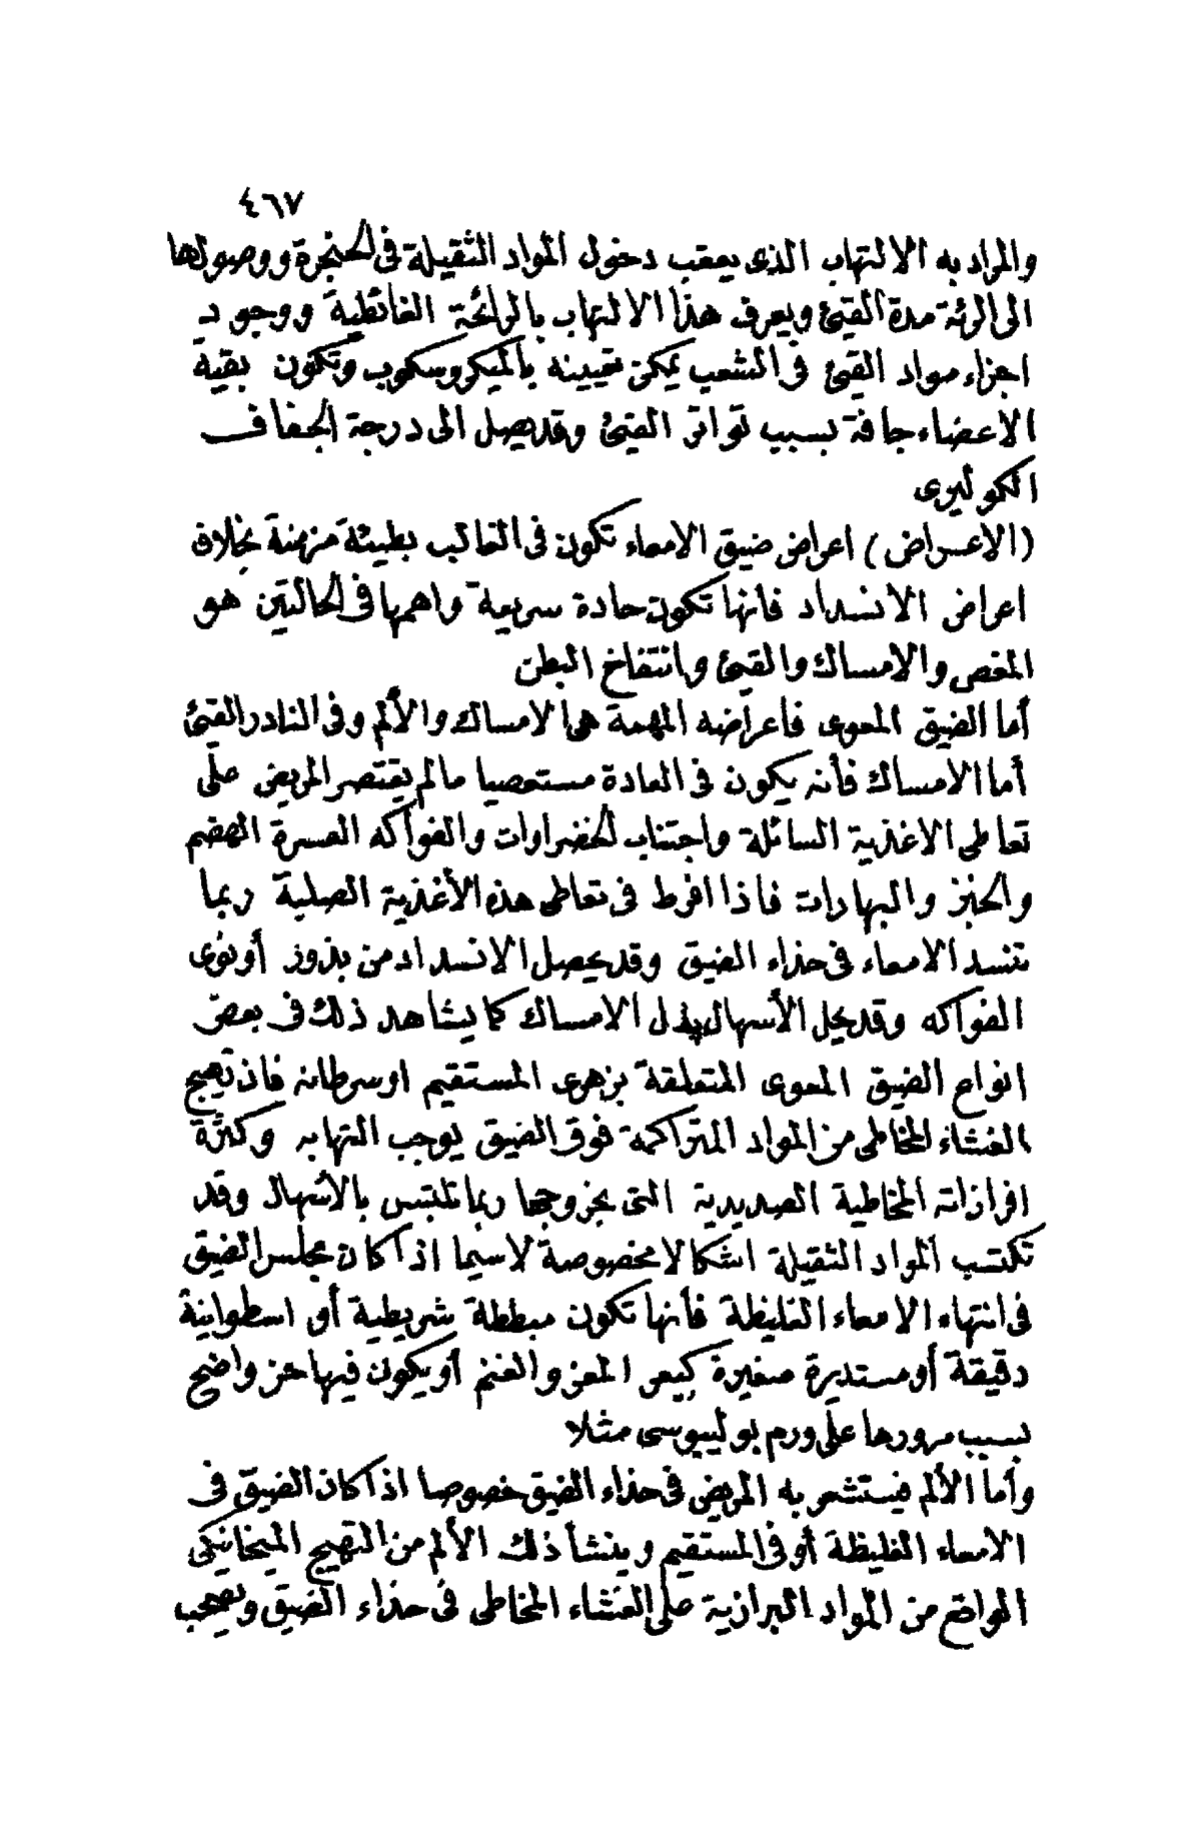 ٤٦٧
والمراد به الالتهاب الذى يعقب دخول المواد الثقيلة فى الحنجرة ووصولها
الى الرئة مدة القيئ ويعرف هذا الالتهاب بالرائحة الغائطية ووجود
اجزاء مواد القيئ فى الشعب يمكن تعيينه بالميكروسكوب وتكون بقية
الاعضاء جافة بسبب تواتر القيئ وقد يصل الى درجة الجفاف
الكوليرى
(الاعراض) اعراض ضيق الامعاء تكون فى الغالب بطيئة مزمنة بخلاف
اعراض الانسداد فانها تكون حادة سريعة واهمها فى الحالتين هو
المغص والامساك والقيئ وانتفاخ البطن
أما الضيق المعوى فاعراضه المهمة هى الامساك والألم وفى النادر القيئ
أما الامساك فأنه يكون فى العادة مستعصيا مالم يقتصر المريض على
تعاطى الاغذية السائلة واجتناب الخضراوات والفواكه العسرة الهضم
والخبز والبهارات فاذا افرط فى تعاطى هذه الأغذية الصلبة ربما
تنسد الامعاء فى حذاء الضيق وقد يحصل الانسداد من بذور أو نوى
الفواكه وقد يحل الأسهال بدل الامساك كما يشاهد ذلك فى بعض
انواع الضيق المعوى المتعلقة بزهرى المستقيم او سرطانه فان تهيج
الغشاء المخاطى من المواد المتراكمة فوق الضيق يوجب التهابه وكثرة
افرازاته المخاطية الصديدية التى بخروجها ربما تلتبس بالاسهال وقد
تكتسب المواد الثقيلة اشكالا مخصوصة لاسيما اذا كان مجلس الضيق
فى انتهاء الامعاء الغليظة فأنها تكون مبططة شريطية أو اسطوانية
دقيقة أو مستديرة صغيرة كبعر المعز والغنم أو يكون فيها حز واضح
بسبب مرورها على ورم بوليبوسى مثلا
وأما الألم فيستشعر به المريض فى حذاء الضيق خصوصا اذا كان الضيق فى
الامعاء الغليظة أو فى المستقيم وينشأ ذلك الألم من التهيج الميخانيكى
الواقع من المواد البرازية على الغشاء المخاطى فى حذاء الضيق ويصحب